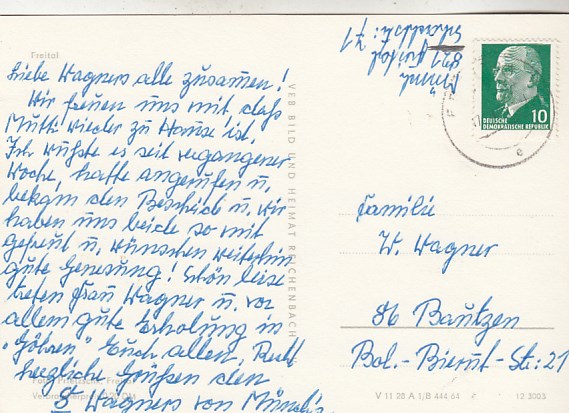 Freital
Liebe Wagners alle zusammen!
Wir freuen uns mit, daß
Mutti wieder zu Hause ist.
Ich wußte es seit vergangener
Woche, hatte angerufen u.
bekam den Bescheid u. wir
haben uns beide so mit
gefreut u. wünschen weiterhin
gute Genesung! Schön
treten Frau Wagner u. vor
allem gute Erholung in
"Göhren" Euch allen, Recht
herzliche Grüßen den
Wagners von
VEB BILD UND HEIMAT REICHENBACH
821 Freital
71
10
DEUTSCHE
DEMOKRATISCHE REPUBLIK
Familie
W. Wagner
86 Bautzen
Bol.-Bierut-Str. 21
V 11 28 A 1/B 444 64
12 3003